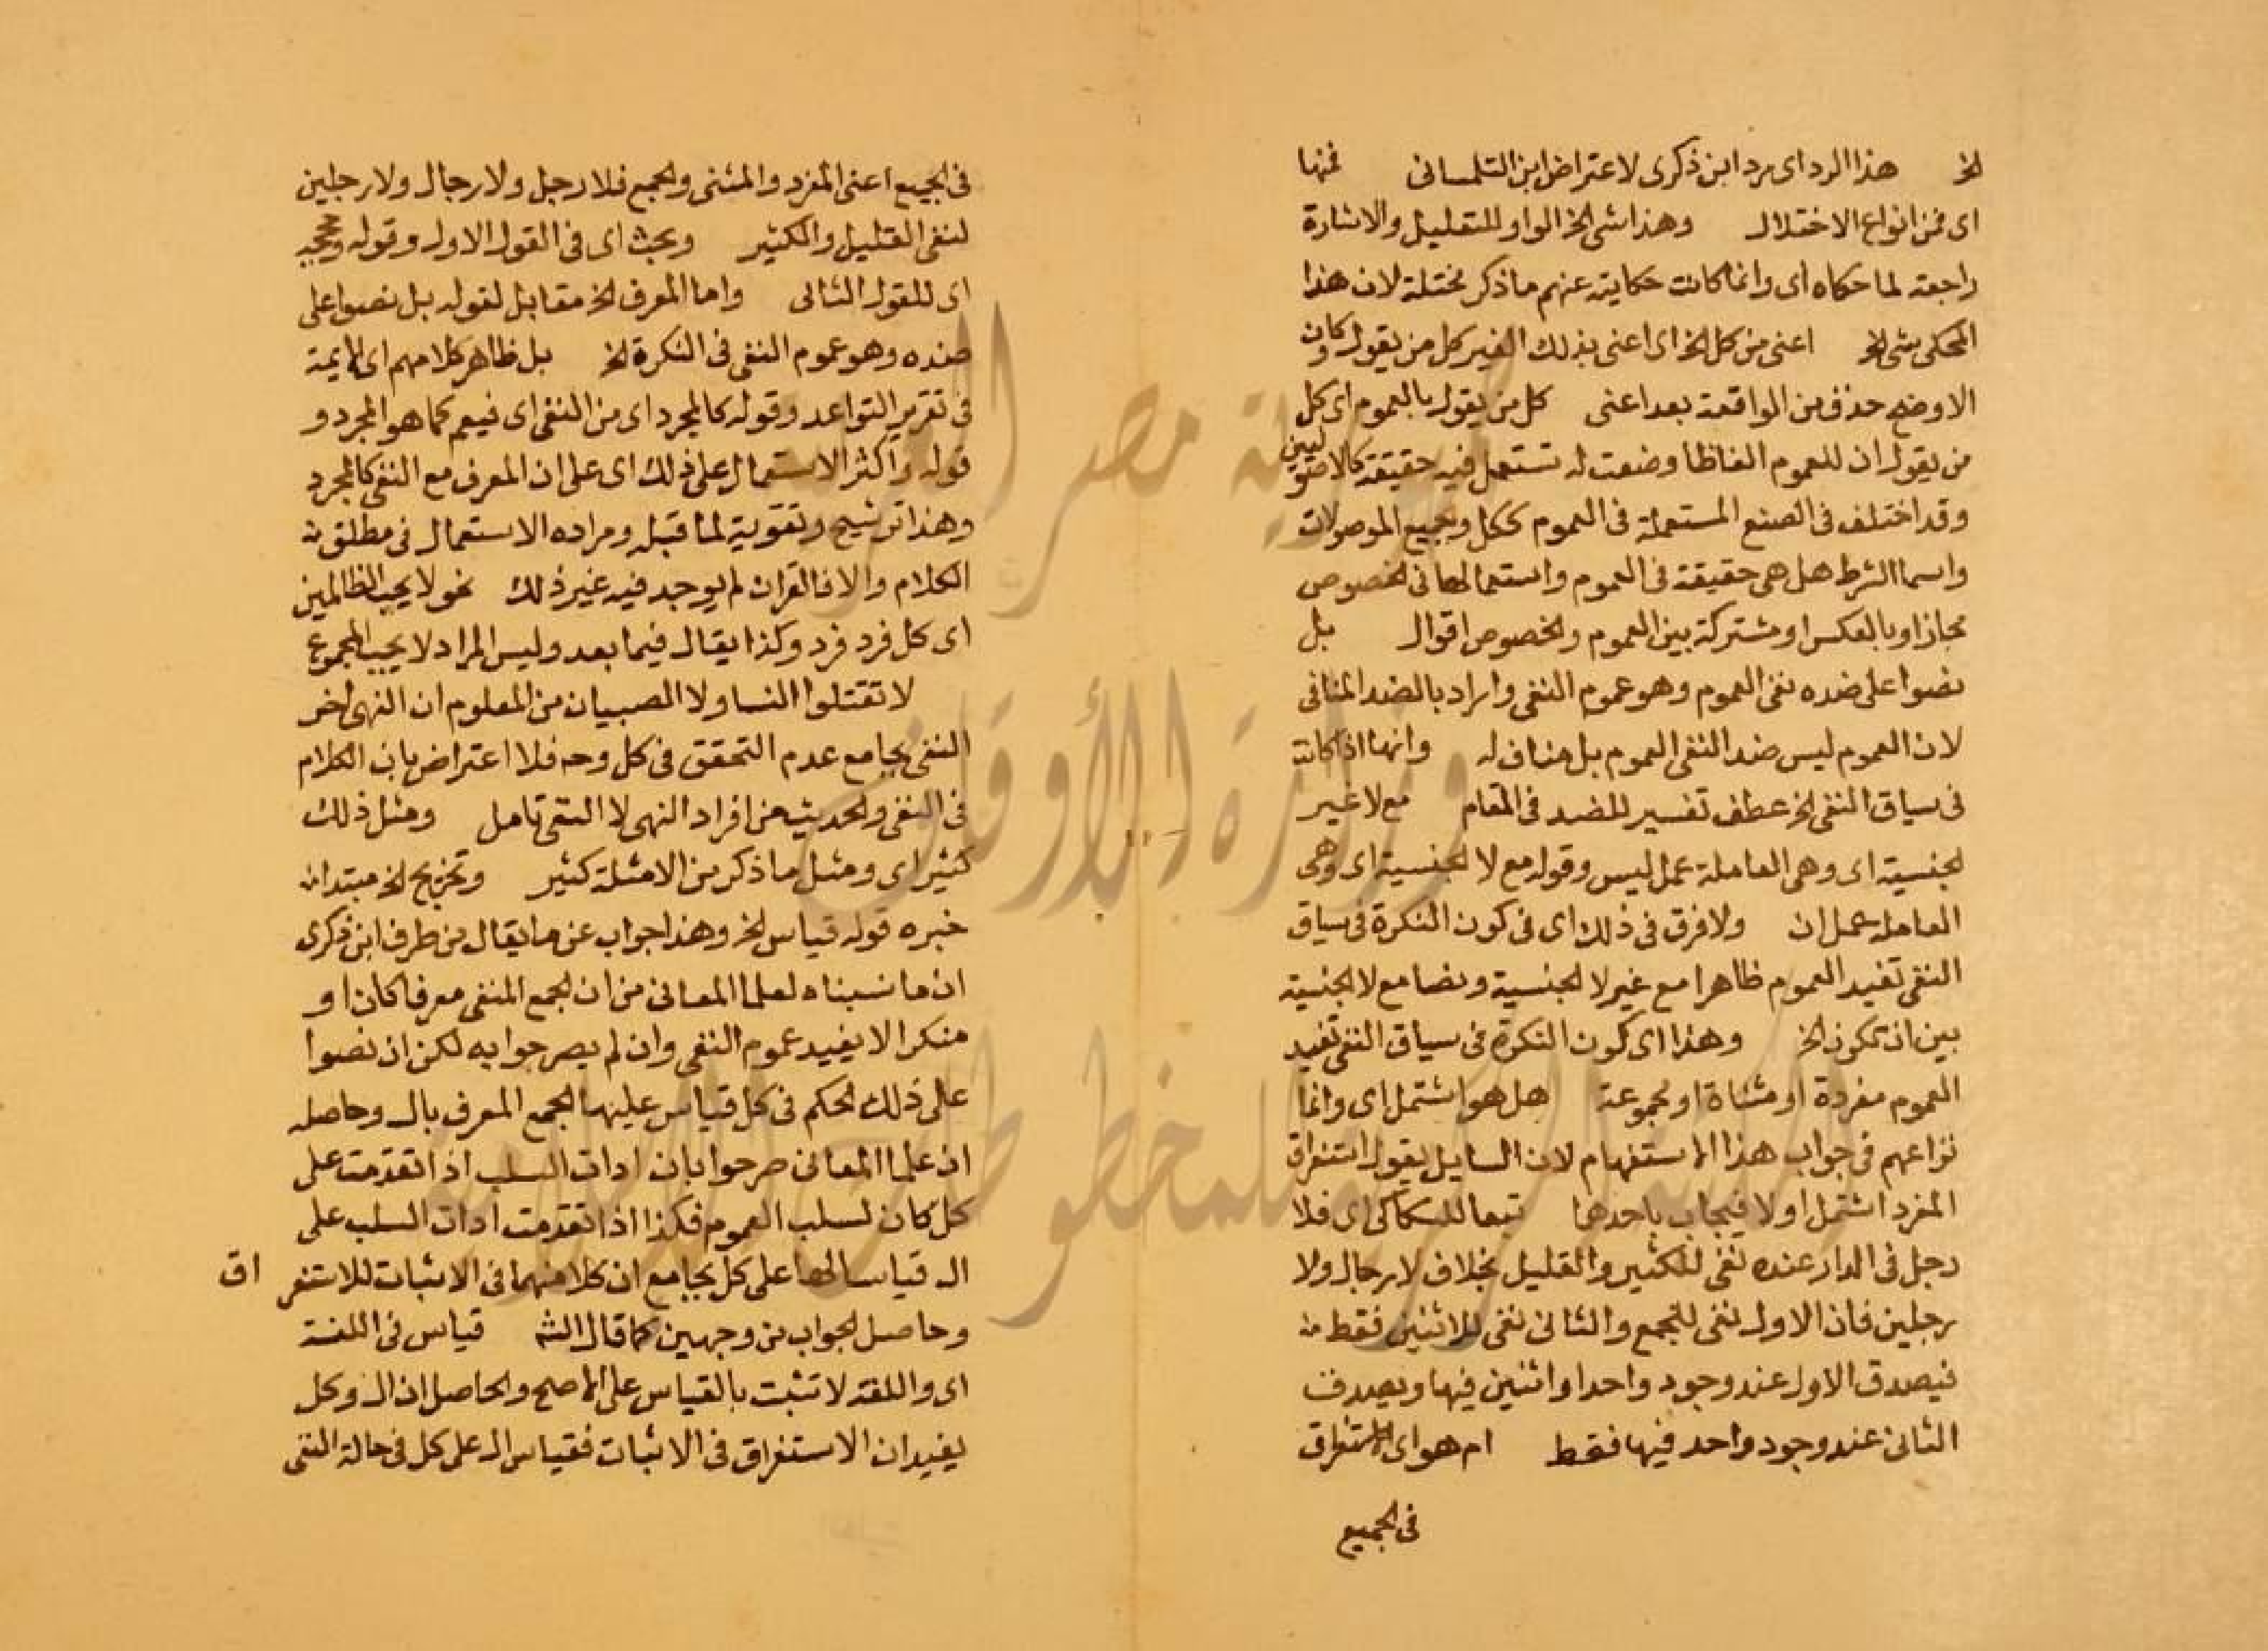 الخ هذا الرد اى رد ابن ذكرى لاعتراض ابن التلمسانى فمنها
اى فمن انواع الاختلال وهذا شى الخ الواو للتعليل والاشارة
راجعة لما حكاه اى وانما كانت حكايته عنهم ما ذكر مختلة لان هذا
المحكى شى الخ اعنى من كل الخ اى اعنى بذلك الغير كل من يقول وكان
الاوضح حذف من الواقعة بعد اعنى كل من يقول بالعموم اى كل
من يقول ان للعموم الفاظا وضعت له تستعمل فيه حقيقة كالاصوليين
وقد اختلف فى الصيغ المستعملة فى العموم ككل وجميع الموصولات
واسما الشرط هل هى حقيقة فى العموم واستعمالها فى الخصوص
مجاز او بالعكس او مشتركة بين العموم والخصوص اقوال بل
نصوا على ضده نفى العموم وهو عموم النفى واراد بالضد المنافى
لان العموم ليس ضد النفى العموم بل مناف له وانها اذا كانت
فى سياق النفى الخ عطف تفسير للضد فى المقام مع لا غير
الجنسية اى وهى العاملة عمل ليس وقوله مع لا الجنسية اى وهى
العاملة عمل ان ولا فرق فى ذلك اى فى كون النكرة فى سياق
النفى تفيد العموم ظاهرا مع غير لا الجنسية ونصا مع لا الجنسية
بين ان تكون الخ وهذا اى كون النكرة فى سياق النفى تفيد
العموم مفردة او مثناة او مجموعة هل هو اشتمل اى وانما
نزاعهم فى جواب هذا الاستفهام لان السايل يقول استغراق
المفرد اشتمل او لا فيجاب باحدهما تبعا للسكاكى اى فلا
رجل فى الدار عنده نفى للكثير والقليل بخلاف لا رجال ولا
رجلين فان الاول نفى للجمع والثانى نفى للاثنين فقط
فيصدق الاول عند وجود واحد او اثنين فيها ويصدق
الثانى عند وجود واحد فيها فقط ام هو اى الاستغراق
فى الجميع
فى الجميع اعنى المفرد والمثنى والجمع فلا رجل ولا رجال ولا رجلين
لنفى القليل والكثير وبحث اى فى القول الاول وقوله وحجج
اى للقول الثانى واما المعرف الخ مقابل لقوله بل نصوا على
ضده وهو عموم النفى فى النكرة الخ بل ظاهر كلامهم اى الايمة
فى تقرير القواعد وقوله كالمجرد اى من النفى اى فيعم كما هو المجرد و
قوله واكثر الاستعمال على ذلك اى على ان المعرف مع النفى كالمجرد
وهذا ترشيح وتقوية لما قبله ومراده الاستعمال فى مطلق
الكلام والا فالقران لم يوجد فيه غير ذلك نحو لا يحب الظالمين
اى كل فرد فرد وكذا يقال فيما بعد وليس المراد لا يحب المجموع
لا تقتلوا النسا ولا الصبيان من المعلوم ان النهى اخو
النفى بجامع عدم التحقق فى كل وحه فلا اعتراض بان الكلام
فى النفى والحديث من افراد النهى لا النفى تامل ومثل ذلك
كثير اى ومثل ما ذكر من الامثلة كثير وتخريج الخ مبتدا
خبره قوله قياس الخ وهذا جواب عن ما يقال من طرف ابن ذكرى
ان ما نسبناه لعلما المعانى من ان الجمع المنفى معرفا كان او
منكرا لا يفيد عموم النفى وان لم يصرحوا به لكن ان نصوا
على ذلك الحكم فى كل قياس عليها الجمع المعرف بال وحاصله
ان علما المعانى صرحوا بان ادات السلب اذا تقدمت على
كل كان لسلب العموم فكذا اذا تقدمت ادات السلب على
ال قياسا لها على كل بجامع ان كلا منهما فى الاثبات للاستغراق
وحاصل الجواب من وجهين كما قال الشه قياس فى اللغة
اى واللغة لا تثبت بالقياس على الاصح والحاصل ان ال وكل
يفيدان الاستغراق فى الاثبات فقياس ال على كل فى حالة النفى
جمهورية مصر العربية
وزارة الأوقاف
المكتبة المركزية للمخطوطات الإسلامية